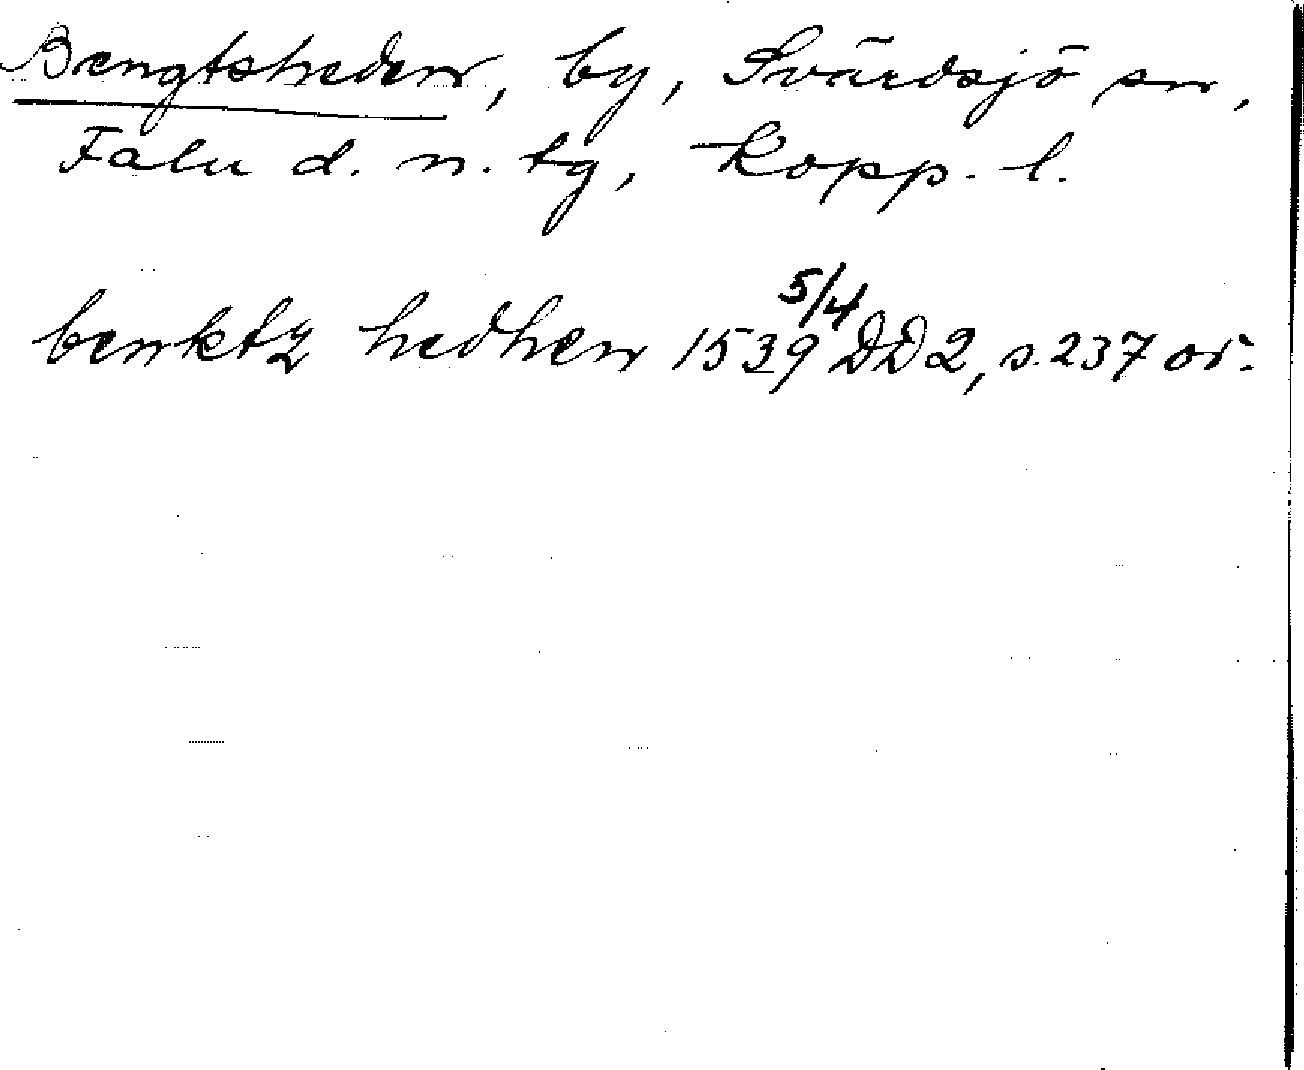 Bengtsheden, by, Svärdsjö sn,
Falu d. n. tg, Kopp. l.
benktz hedhen 1539 5/4 DD 2, s. 237 or.